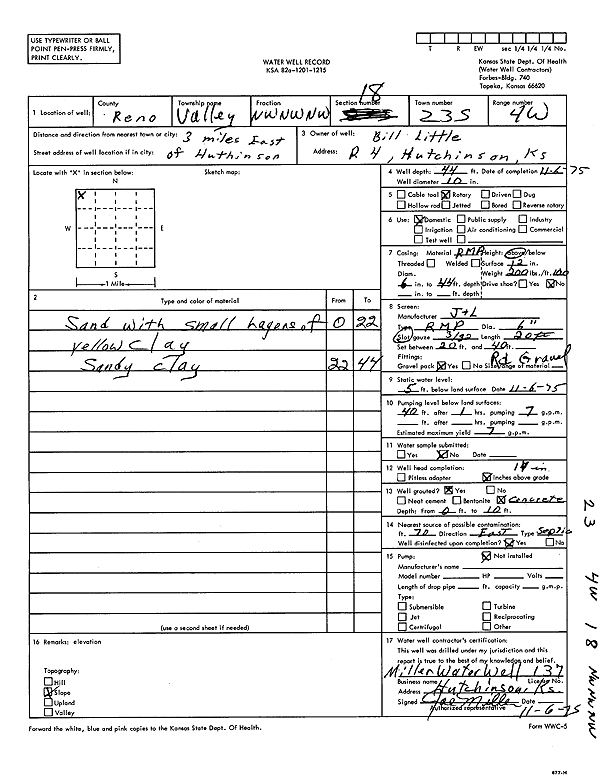 USE TYPEWRITER OR BALL
POINT PEN-PRESS FIRMLY,
PRINT CLEARLY.
WATER WELL RECORD
KSA 82a-1201-1215
T R EW sec 1/4 1/4 1/4 No.
Kansas State Dept. Of Health
(Water Well Contractors)
Forbes-Bldg. 740
Topeka, Kansas 66620
1 Location of well: County Reno Township name Valley Fraction NWNWNW Section number 18 Town number 23S Range number 4W
Distance and direction from nearest town or city: 3 miles East
Street address of well location if in city: of Huthinson
3 Owner of well: Bill Little
Address: R 4, Hutchinson, Ks
Locate with "X" in section below: Sketch map:
N
X
W E
S
1 Mile
2 Type and color of material From To
Sand with small hagens of 0 22
yellow clay
Sandy clay 22 44
(use a second sheet if needed)
4 Well depth: 44 ft. Date of completion 11-6-75
Well diameter 10 in.
5 Cable tool X Rotary Driven Dug
Hollow rod Jetted Bored Reverse rotary
6 Use: X Domestic Public supply Industry
Irrigation Air conditioning Commercial
Test well
7 Casing: Material RMP Height: Above/below
Threaded Welded Surface 12 in.
Diam. Weight 200 lbs./ft. 160
6 in. to 44 ft. depth Drive shoe? Yes X No
in. to ft. depth
8 Screen:
Manufacturer J+L
Type RMP Dia. 6"
Slot/gauze Length 20 ft
Set between 20 ft. and 40 ft.
Fittings: Rd Gravel
Gravel pack X Yes No Size range of material
9 Static water level:
5 ft. below land surface Date 11-6-75
10 Pumping level below land surfaces:
40 ft. after 1 hrs. pumping 7 g.p.m.
ft. after hrs. pumping g.p.m.
Estimated maximum yield 7 g.p.m.
11 Water sample submitted:
Yes X No Date
12 Well head completion: 14 in
Pitless adapter X Inches above grade
13 Well grouted? X Yes No
Neat cement Bentonite X Concrete
Depth: From 0 ft. to 10 ft.
14 Nearest source of possible contamination:
ft. 70 Direction East Type Septic
Well disinfected upon completion? X Yes No
15 Pump: X Not installed
Manufacturer's name
Model number HP Volts
Length of drop pipe ft. capacity g.m.p.
Type:
Submersible Turbine
Jet Reciprocating
Centrifugal Other
16 Remarks: elevation
Topography:
Hill
X Slope
Upland
Valley
17 Water well contractor's certification:
This well was drilled under my jurisdiction and this
report is true to the best of my knowledge and belief.
Miller Water Well 137
Business name License No.
Address Hutchinson, Ks.
Signed Joe Miller Date
Authorized representative 11-6-75
Forward the white, blue and pink copies to the Kansas State Dept. Of Health.
Form WWC-5
23 4W 18 NWNWNW
677-H